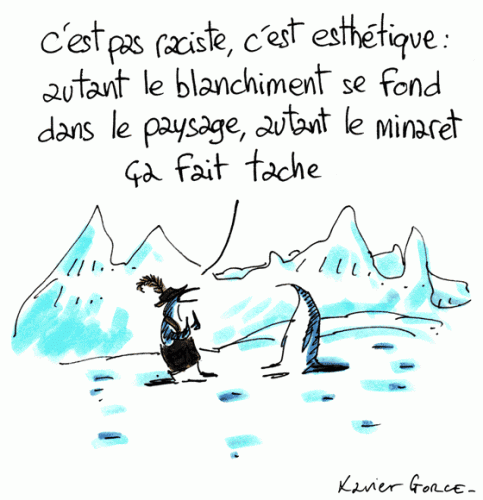 c'est pas raciste, c'est esthétique :
autant le blanchiment se fond
dans le paysage, autant le minaret
ça fait tache
Xavier Gorce-